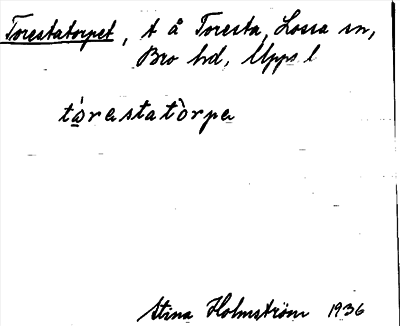 Torestatorpet, t å Toresta, Lossa sn,
Bro hd, Upps l
tò̲restatòrpe
Stina Holmström 1936